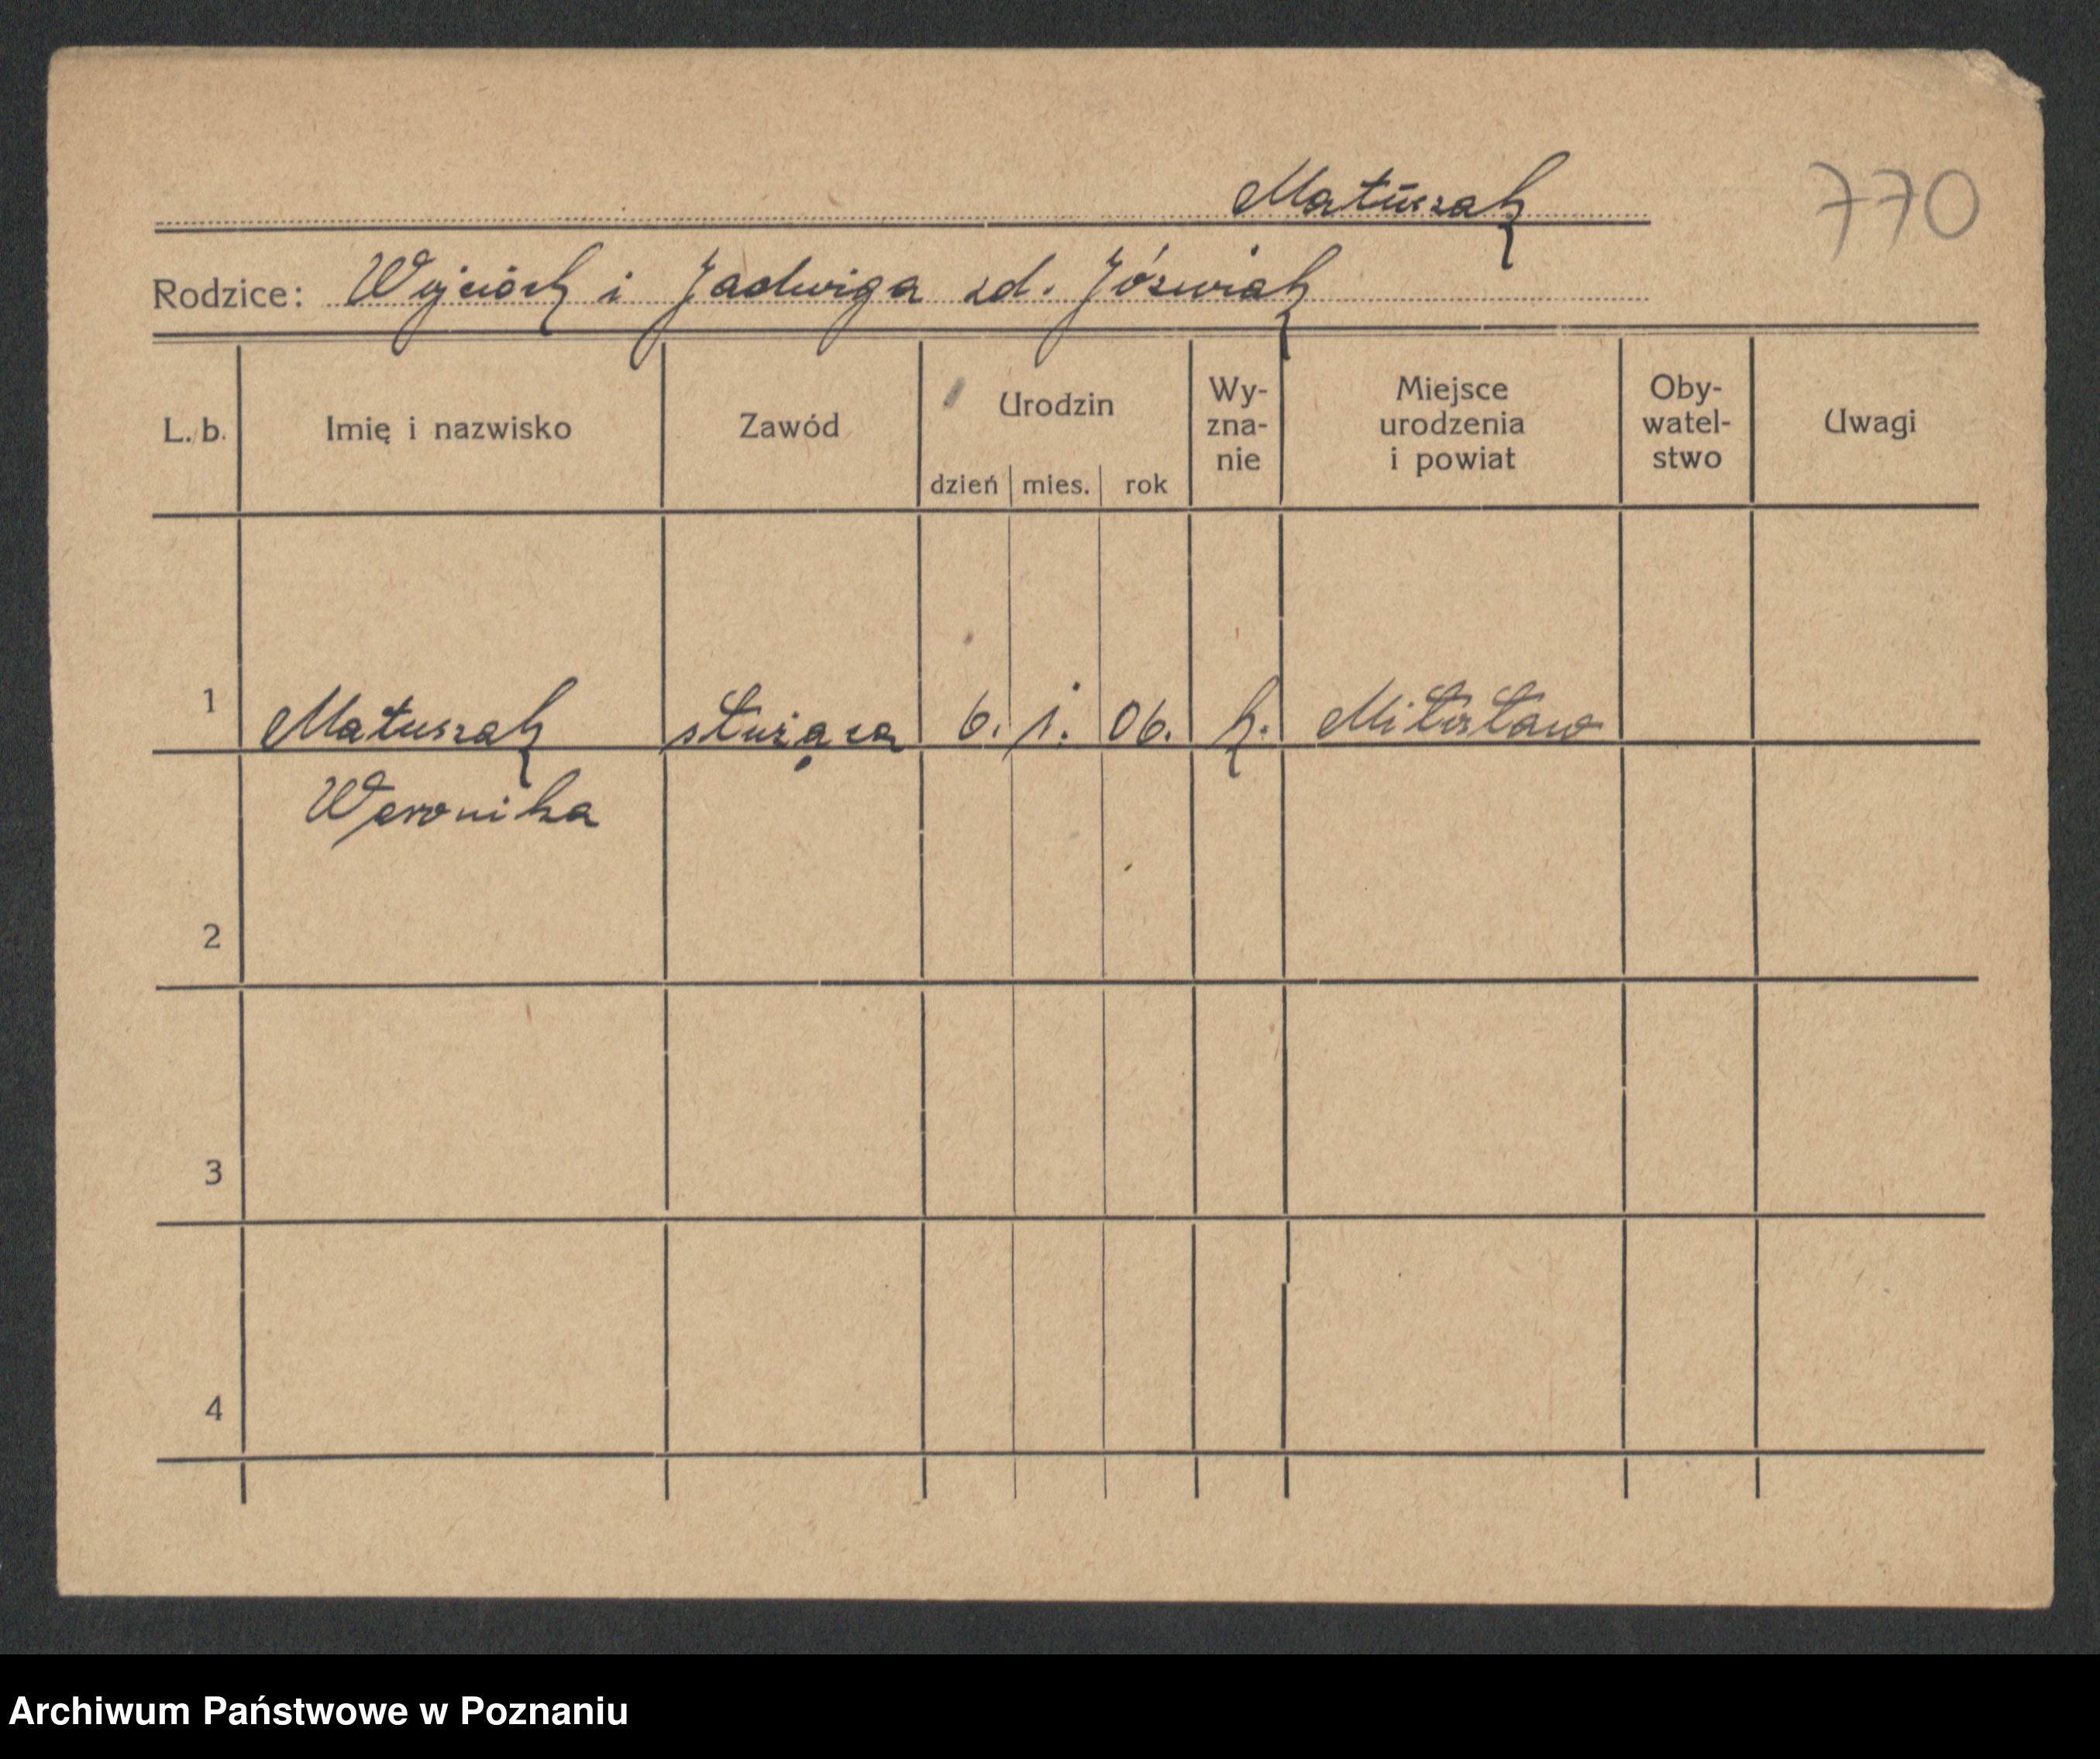 Matuszak
770
Rodzice: Wojciech i Jadwiga zd. Józwiak
L. b. Imię i nazwisko Zawód Urodzin dzień mies. rok Wy-zna-nie Miejsce urodzenia i powiat Oby-watel-stwo Uwagi
1 Matuszak służąca 6. 1. 06. k. Miłosław
Weronika
2
3
4
Archiwum Państwowe w Poznaniu